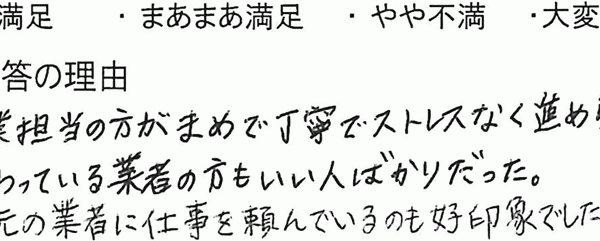 満足 ・まあまあ満足 ・やや不満 ・大変
答の理由
業担当の方がまめで丁寧でストレスなく進め
わっている業者の方もいい人ばかりだった。
元の業者に仕事を頼んでいるのも好印象でした